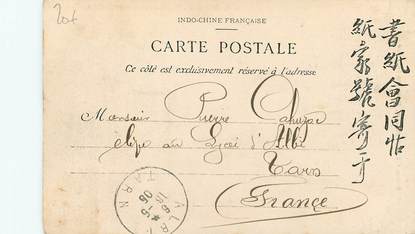 20f
INDO-CHINE FRANÇAISE
CARTE POSTALE
Ce côté est exclusivement réservé à l'adresse
Monsieur Pierre Cahuzac
élève au Lycée d'Albi
Tarn
France
ALBI
TARN
15-5
06
書紙會同帖
紙家號寄于